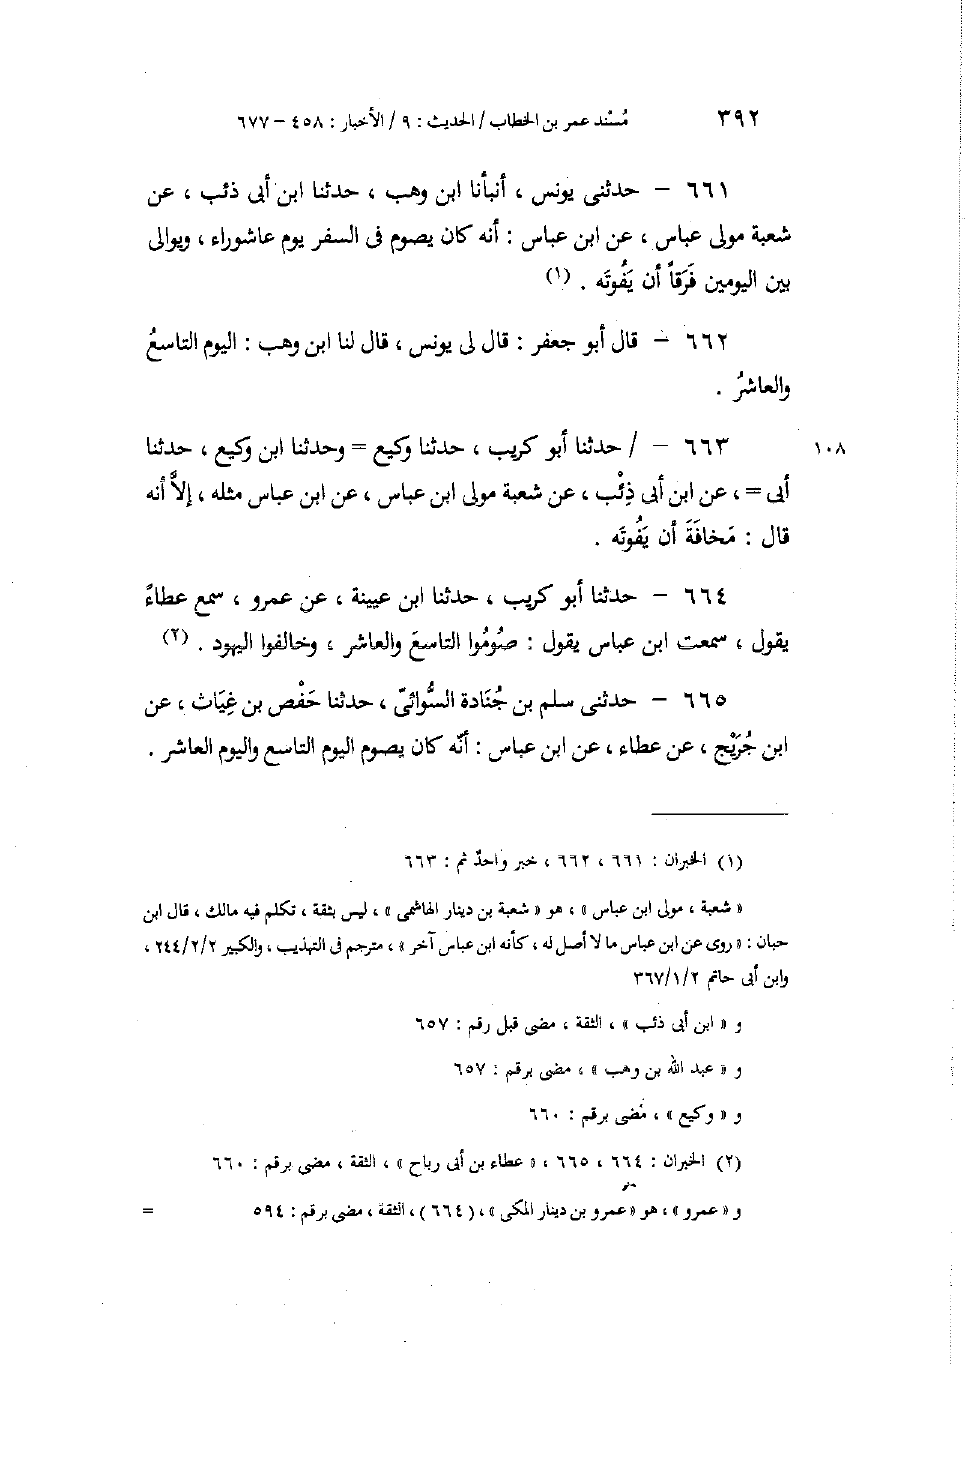 ٣٩٢ مُسْند عمر بن الخطاب / الحديث : ٩ / الأخبار : ٤٥٨ – ٦٧٧
٦٦١ – حدثنى يونس ، أنبأنا ابن وهب ، حدثنا ابن أبى ذئب ، عن
شعبة مولى عباس ، عن ابن عباس : أنه كان يصوم فى السفر يوم عاشوراء ، ويوالى
بين اليومين فَرَقاً أن يَفُوتَه . (١)
٦٦٢ – قال أبو جعفر : قال لى يونس ، قال لنا ابن وهب : اليوم التاسعُ
والعاشرُ .
١٠٨ ٦٦٣ – / حدثنا أبو كريب ، حدثنا وكيع = وحدثنا ابن وكيع ، حدثنا
أبى = ، عن ابن أبى ذِئْب ، عن شعبة مولى ابن عباس ، عن ابن عباس مثله ، إلاَّ أنه
قال : مَخافَةَ أن يَفُوتَه .
٦٦٤ – حدثنا أبو كريب ، حدثنا ابن عيينة ، عن عمرو ، سمع عطاءً
يقول ، سمعت ابن عباس يقول : صُومُوا التاسعَ والعاشر ، وخالفوا اليهود . (٢)
٦٦٥ – حدثنى سلم بن جُنَادة السُّوائىّ ، حدثنا حَفْص بن غِيَاث ، عن
ابن جُرَيْج ، عن عطاء ، عن ابن عباس : أنّه كان يصوم اليوم التاسع واليوم العاشر .
(١) الخبران : ٦٦١ ، ٦٦٢ ، خبر واحدٌ ثم : ٦٦٣
« شعبة ، مولى ابن عباس » ، هو « شعبة بن دينار الهاشمى » ، ليس بثقة ، تكلم فيه مالك ، قال ابن
حبان : « روى عن ابن عباس ما لا أصل له ، كأنه ابن عباس آخر » ، مترجم فى التهذيب ، والكبير ٢/٢/ ٢٤٤ ،
وابن أبى حاتم ٣٦٧/١/٢
و « ابن أبى ذئب » ، الثقة ، مضى قبل رقم : ٦٥٧
و « عبد الله بن وهب » ، مضى برقم : ٦٥٧
و « وكيع » ، مُضى برقم : ٦٦٠
(٢) الخبران : ٦٦٤ ، ٦٦٥ ، « عطاء بن أبى رباح » ، الثقة ، مضى برقم : ٦٦٠
و « عمرو » ، هو « عمرو بن دينار المكى » ، (٦٦٤) ، الثقة ، مضى برقم : ٥٩٤ =